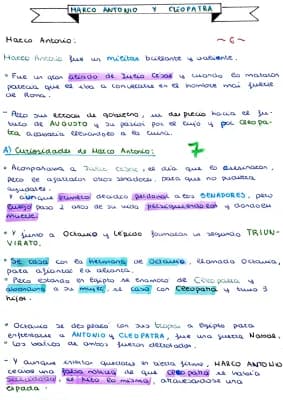 MARCO ANTONIO Y CLEOPATRA
Marco Antonio:
~ 6 ~
Marco Antonio fue un militar brillante y valiente.
* Fue un gran aliado de Julio César y cuando lo mataron
parecía que él iba a convertirse en el hombre más fuerte
de Roma.
- Pero sus errores de gobierno, su desprecio hacia el fu-
turo de AUGUSTO y su pasión por el lujo y por Cleopa-
tra acabaría llevándolo a la ruina.
A) Curiosidades de Marco Antonio:
7
* Acompañaba a Julio César, el día que lo asesinaron,
pero le apartaron otros senadores, para que no pudiera
ayudarle.
Y aunque primero decidió perdonar a los SENADORES, pero
luego pasó 2 años de su vida persiguiéndolos y dándoles
muerte.
* Y junto a Octavio y Lépido formaron un segundo TRIUN-
VIRATO.
* Se casó con la hermana de Octavio, llamada Octavia,
para afianzar la alianza.
* Pero estando en Egipto se enamoró de Cleopatra y
abandonó a su mujer, se casó con Cleopatra y tuvo 3
hijos.
* Octavio se desplazó con sus tropas a Egipto para
enfrentarse a ANTONIO y CLEOPATRA, fue una guerra Naval,
los barcos de ambos fueron derrotados.
- Y aunque intentar quedarse en tierra firme, MARCO ANTONIO
recibió una falsa noticia de que Cleopatra se había
suicidado, él hizo lo mismo, atravesándose una
espada.